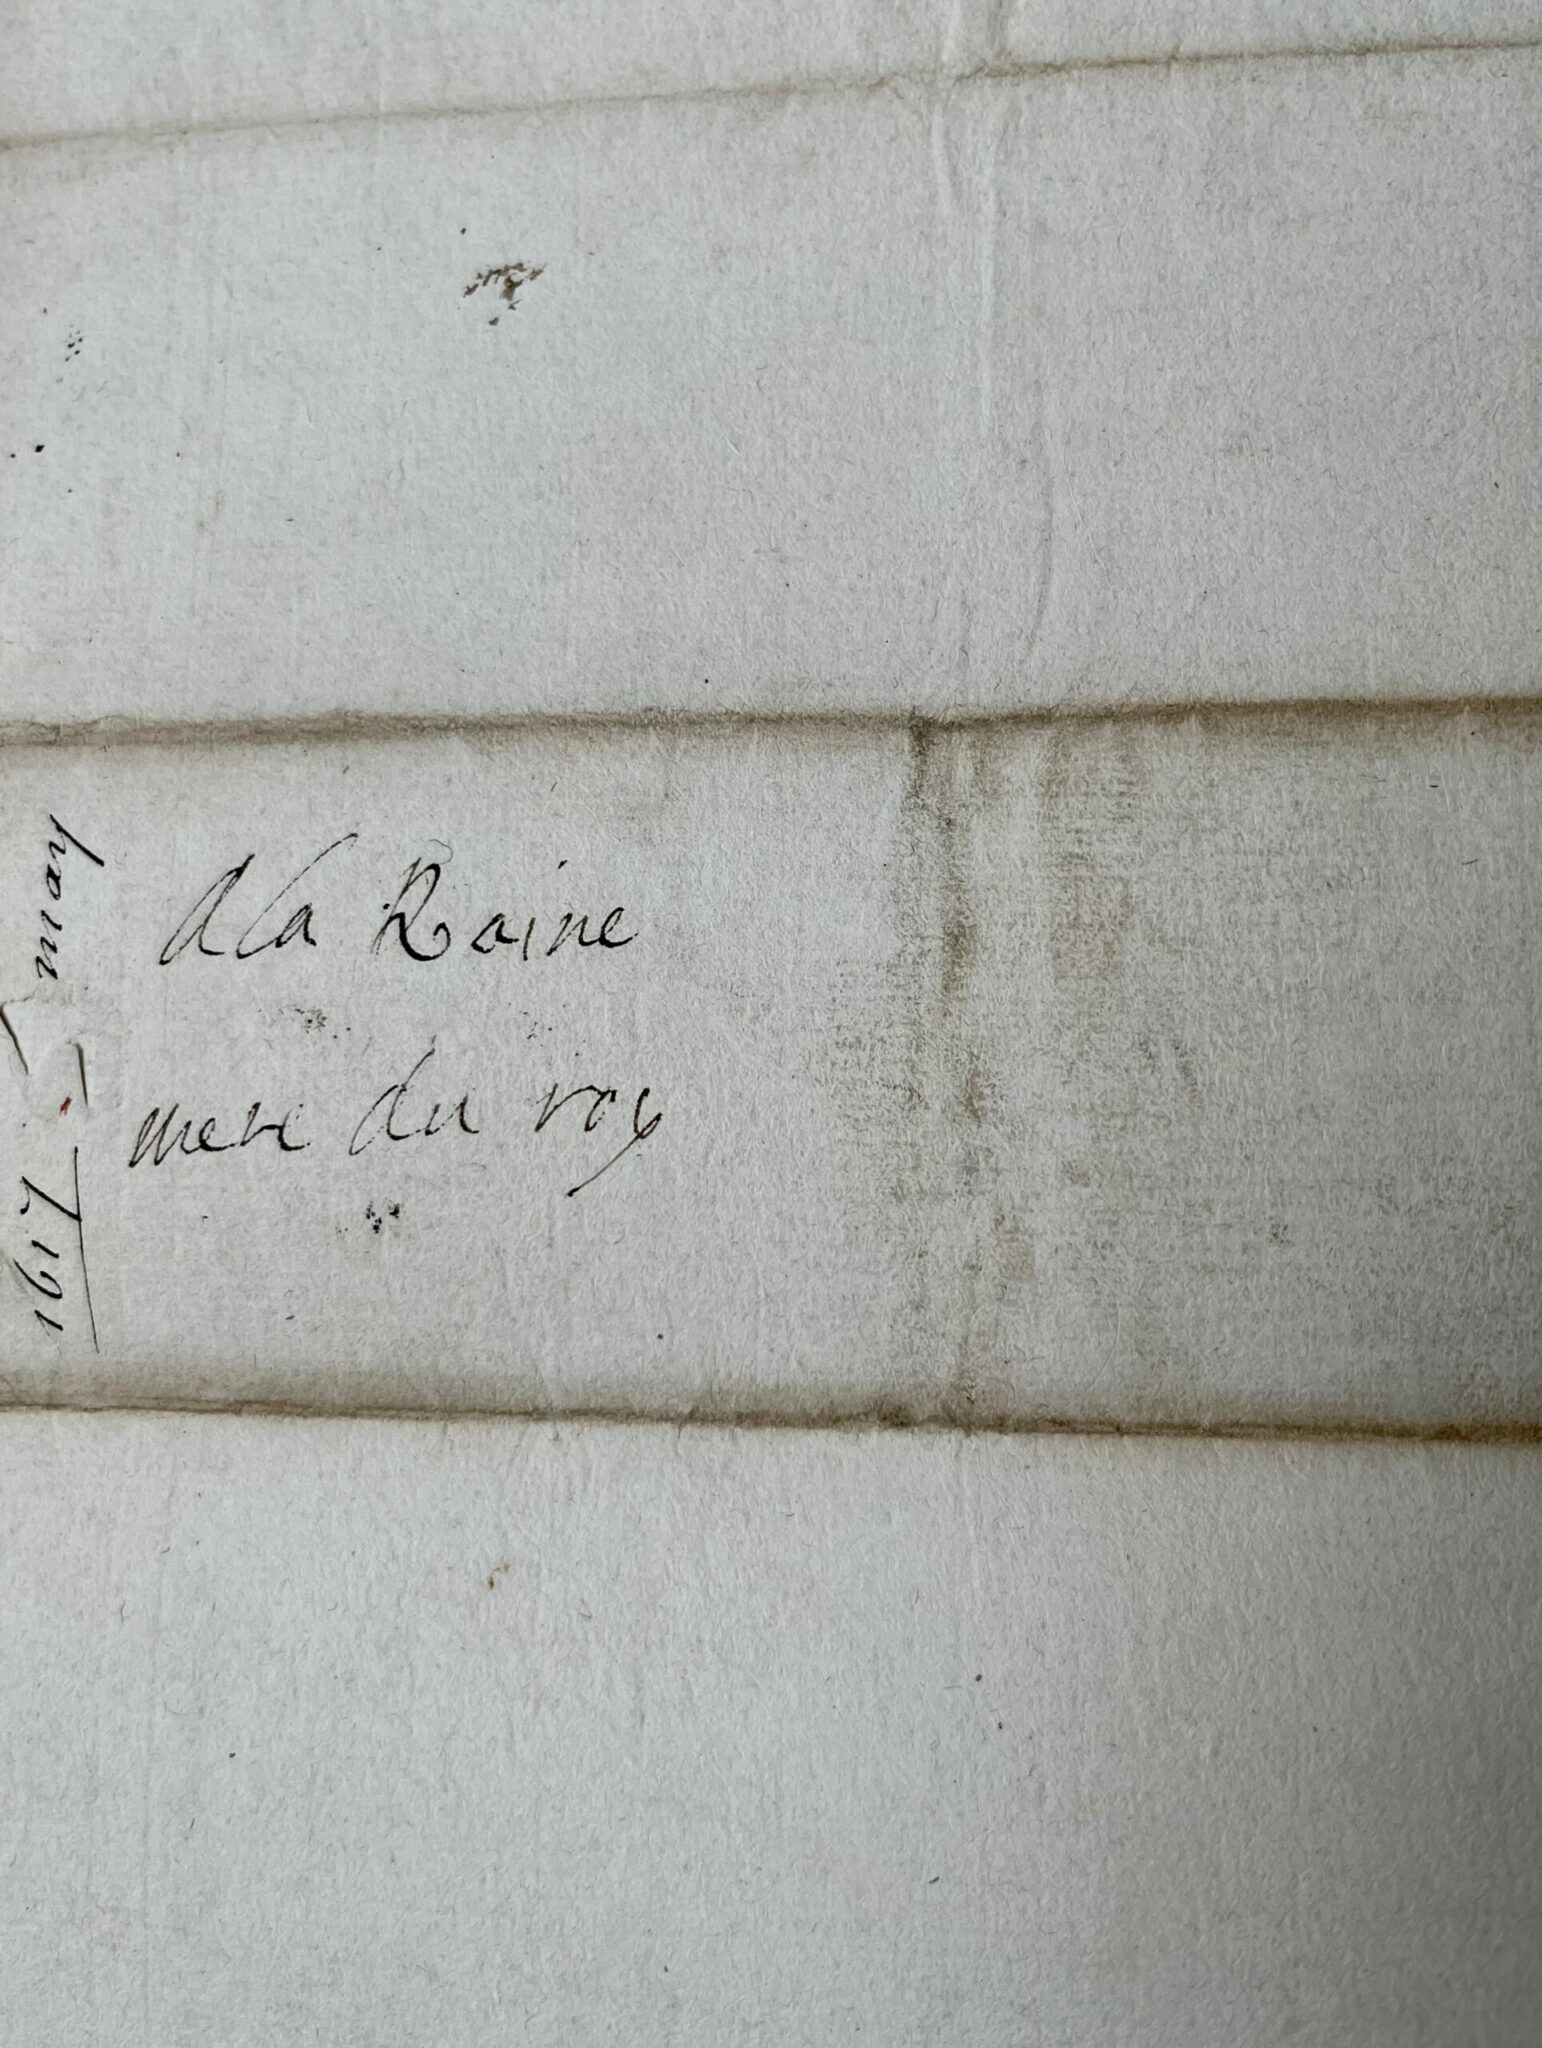 A la Raine
mere du roy
may
1617